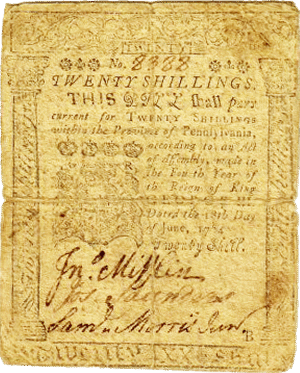 TWENTY
No. 8388
TWENTY SHILLINGS.
THIS BILL shall pass
current for TWENTY SHILLINGS
within the Province of Pennsylvania,
according to an Act
of Assembly, made in
the Fourth Year of
the Reign of King
Dated the 18th Day
of June, 1764
Twenty Shill.
Jno. Mifflin
Saunders
Saml. Morris Junr.
B